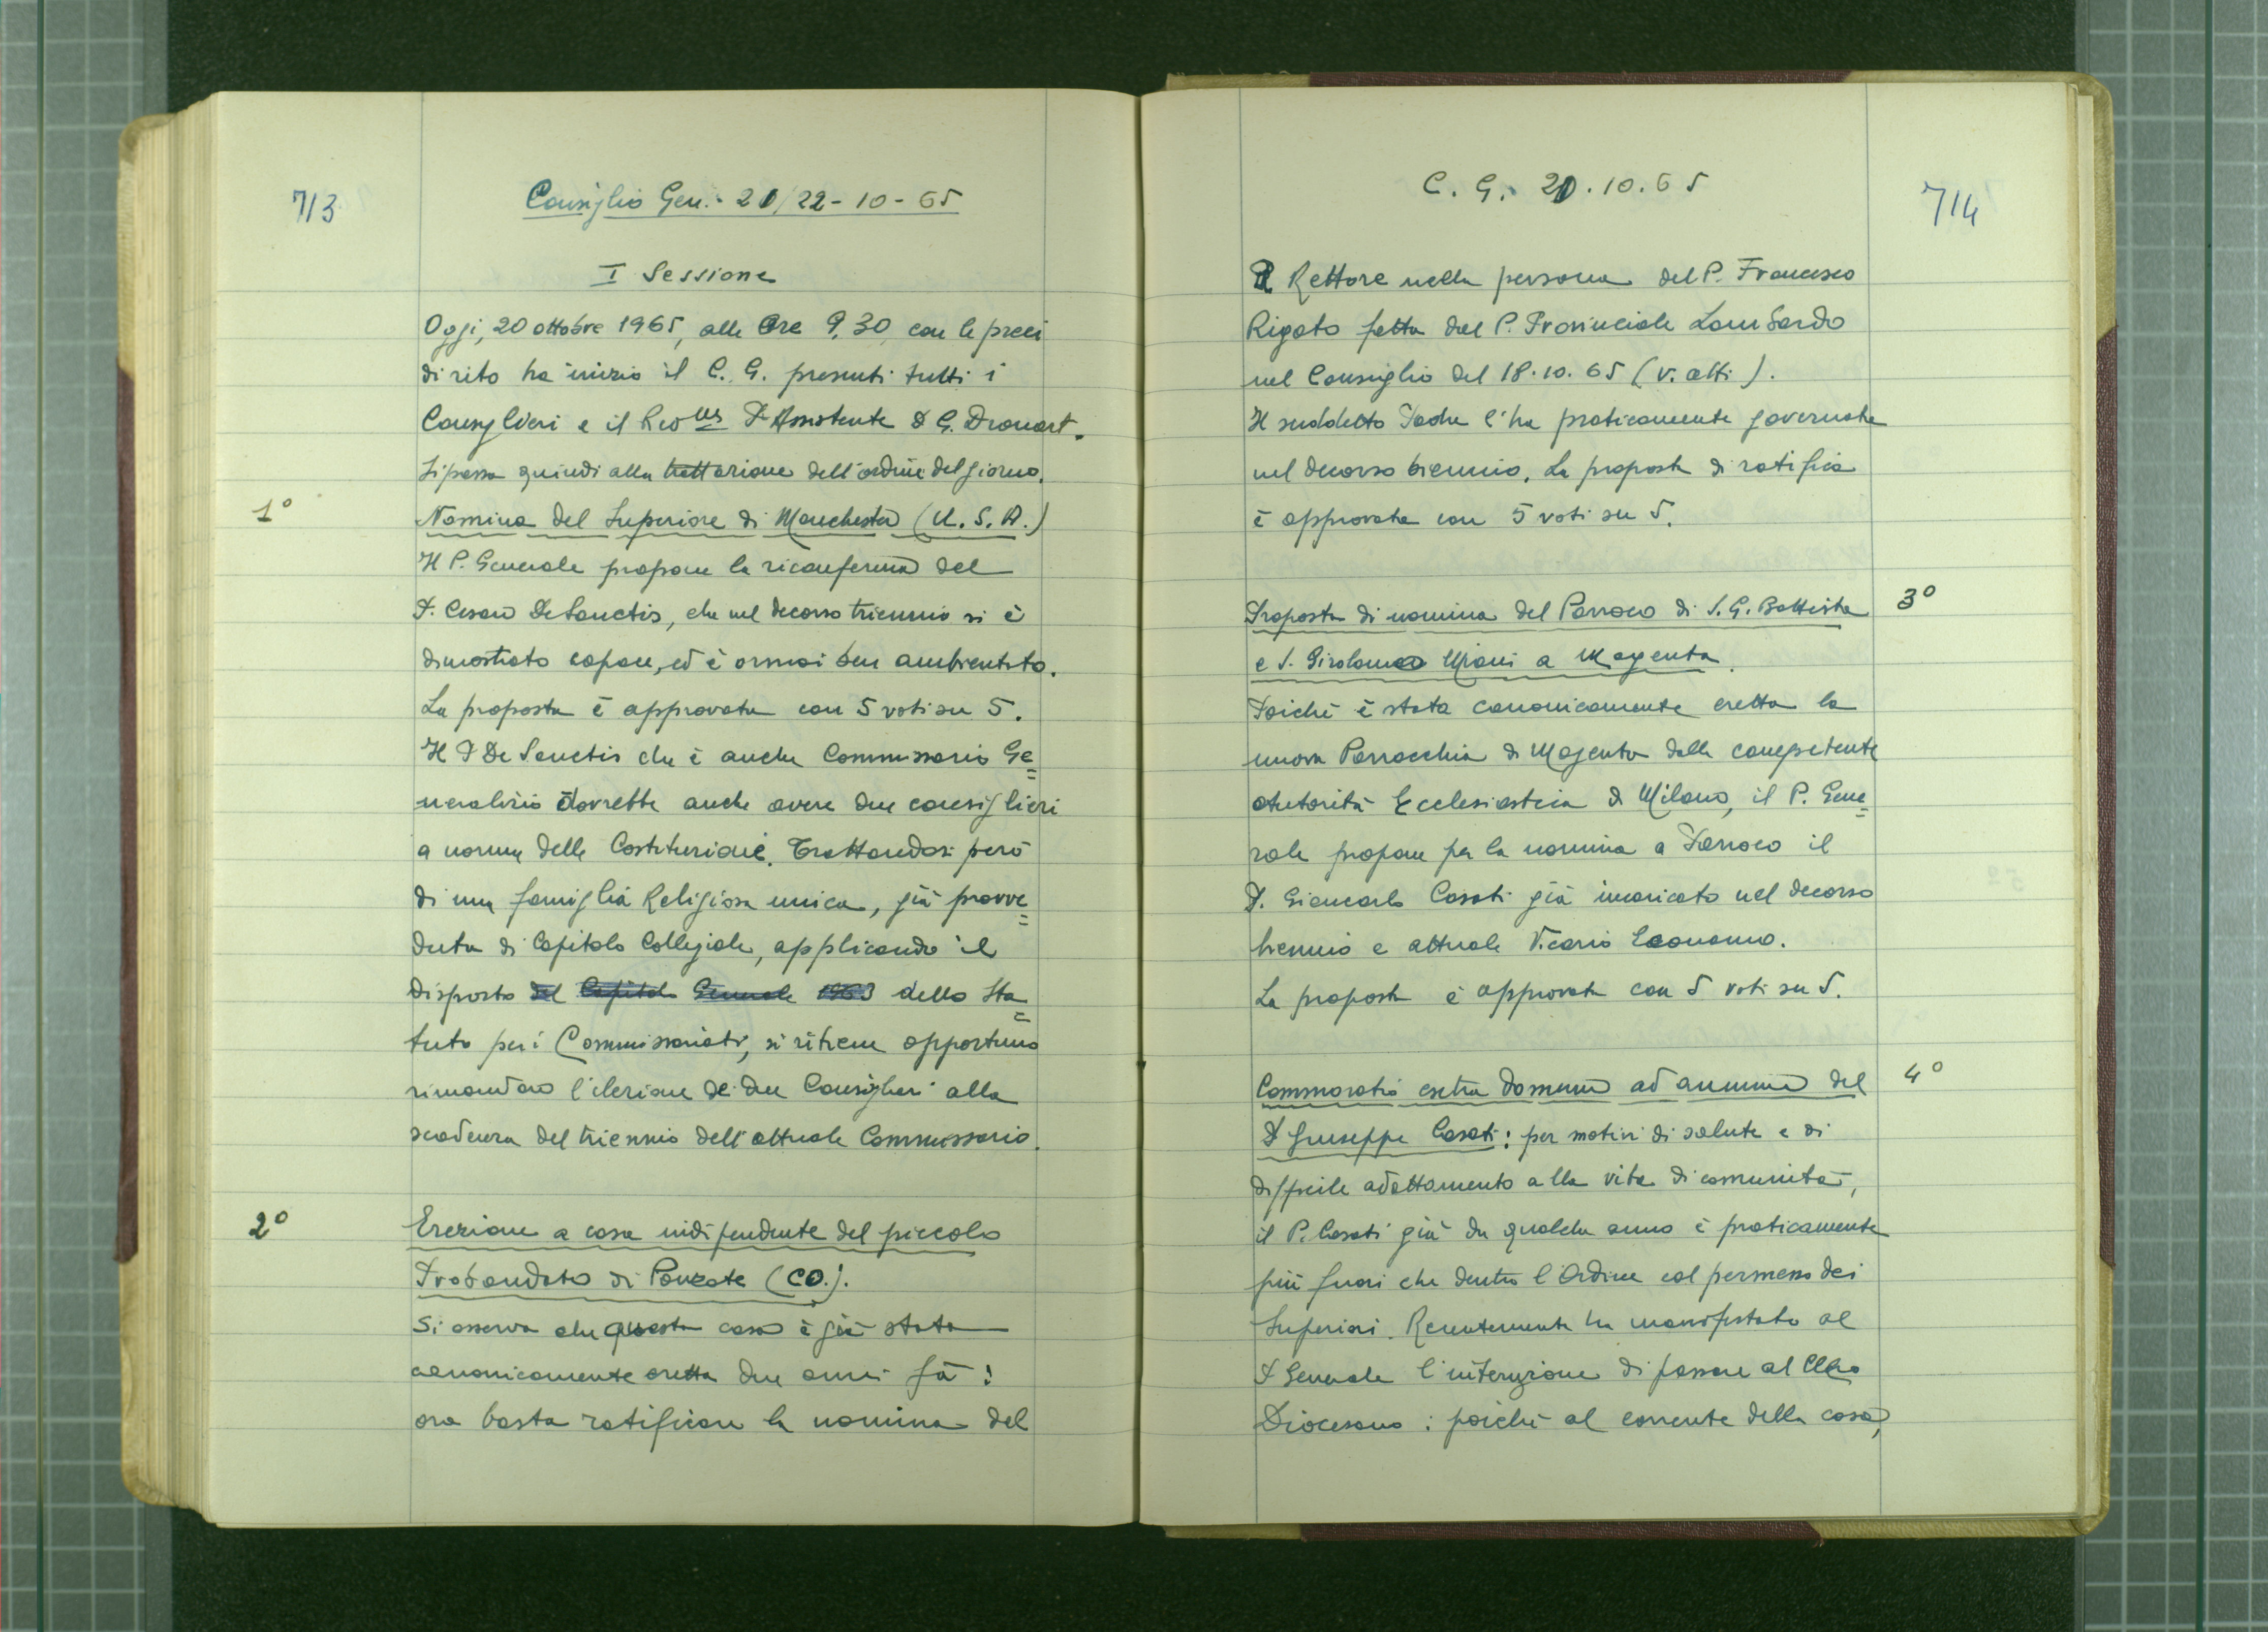 713
Consiglio Gen.- 20/22-10-65
I Sessione
Oggi, 20 ottobre 1965, alle Ore 9,30, con le preci
di rito ha inizio il C. G. presenti tutti i
Consiglieri e il Rev.us P. Assistente D G. Drouart.
Si passa quindi alla trattazione dell'ordine del giorno.
1° Nomina del Superiore di Manchester (U.S.A.)
Il P. Generale propone la riconferma del
P. Cesare De Sanctis, che nel decorso triennio si è
dimostrato capace, ed è ormai ben ambientato.
La proposta è approvata con 5 voti su 5.
Il P De Sanctis che è anche Commissario Ge=
neralizio dovrebbe anche avere due consiglieri
a norma delle Costituzioni. Trattandosi però
di una famiglia Religiosa unica, già provve=
duta di Capitolo Collegiale, applicando il
disposto del Capitolo Generale 1963 dello Sta=
tuto per i Commissariati, si ritiene opportuno
rimandare l'elezione dei due Consiglieri alla
scadenza del triennio dell'attuale Commissario.
2° Erezione a casa indipendente del piccolo
Probandato di Ponzate (CO.).
Si osserva che questa casa è già stata
canonicamente eretta due anni fà:
ora basta ratificare la nomina del
C. G. 20.10.65
714
Rettore nella persona del P. Francesco
Rigato fatta dal P. Provinciale Lombardo
nel Consiglio del 18.10.65 (v. atti).
Il suddetto Padre l'ha praticamente governata
nel decorso biennio. La proposta di ratifica
è approvata con 5 voti su 5.
3° Proposta di nomina del Parroco di S. G. Battista
e S. Girolamo Miani a Magenta.
Poichè è stata canonicamente eretta la
nuova Parrocchia di Magenta dalla competente
Autorità Ecclesiastica di Milano, il P. Gene=
rale propone per la nomina a Parroco il
P. Giancarlo Casati già incaricato nel decorso
biennio e attuale Vicario Economo.
La proposta è approvata con 5 voti su 5.
4° Commoratio extra domum ad annum del
P Giuseppe Casati: per motivi di salute e di
difficile adattamento alla vita di comunità,
il P. Casati già da qualche anno è praticamente
più fuori che dentro l'Ordine col permesso dei
Superiori. Recentemente ha manifestato al
P Generale l'intenzione di passare al Clero
Diocesano: poichè al corrente della cosa,